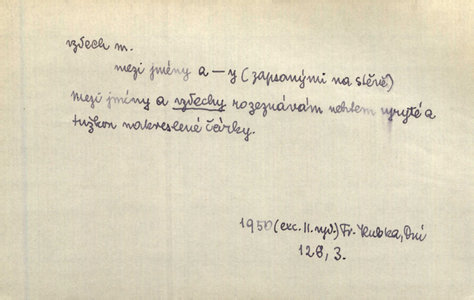 vzdech m.
mezi jmény a —y (zapsanými na stěně)
mezi jmény a vzdechy rozeznávám nehtem vyryté a
tužkou nakreslené čárky.
1950 (exc. II. vyd.) Fr. Kubka, Dni
128, 3.